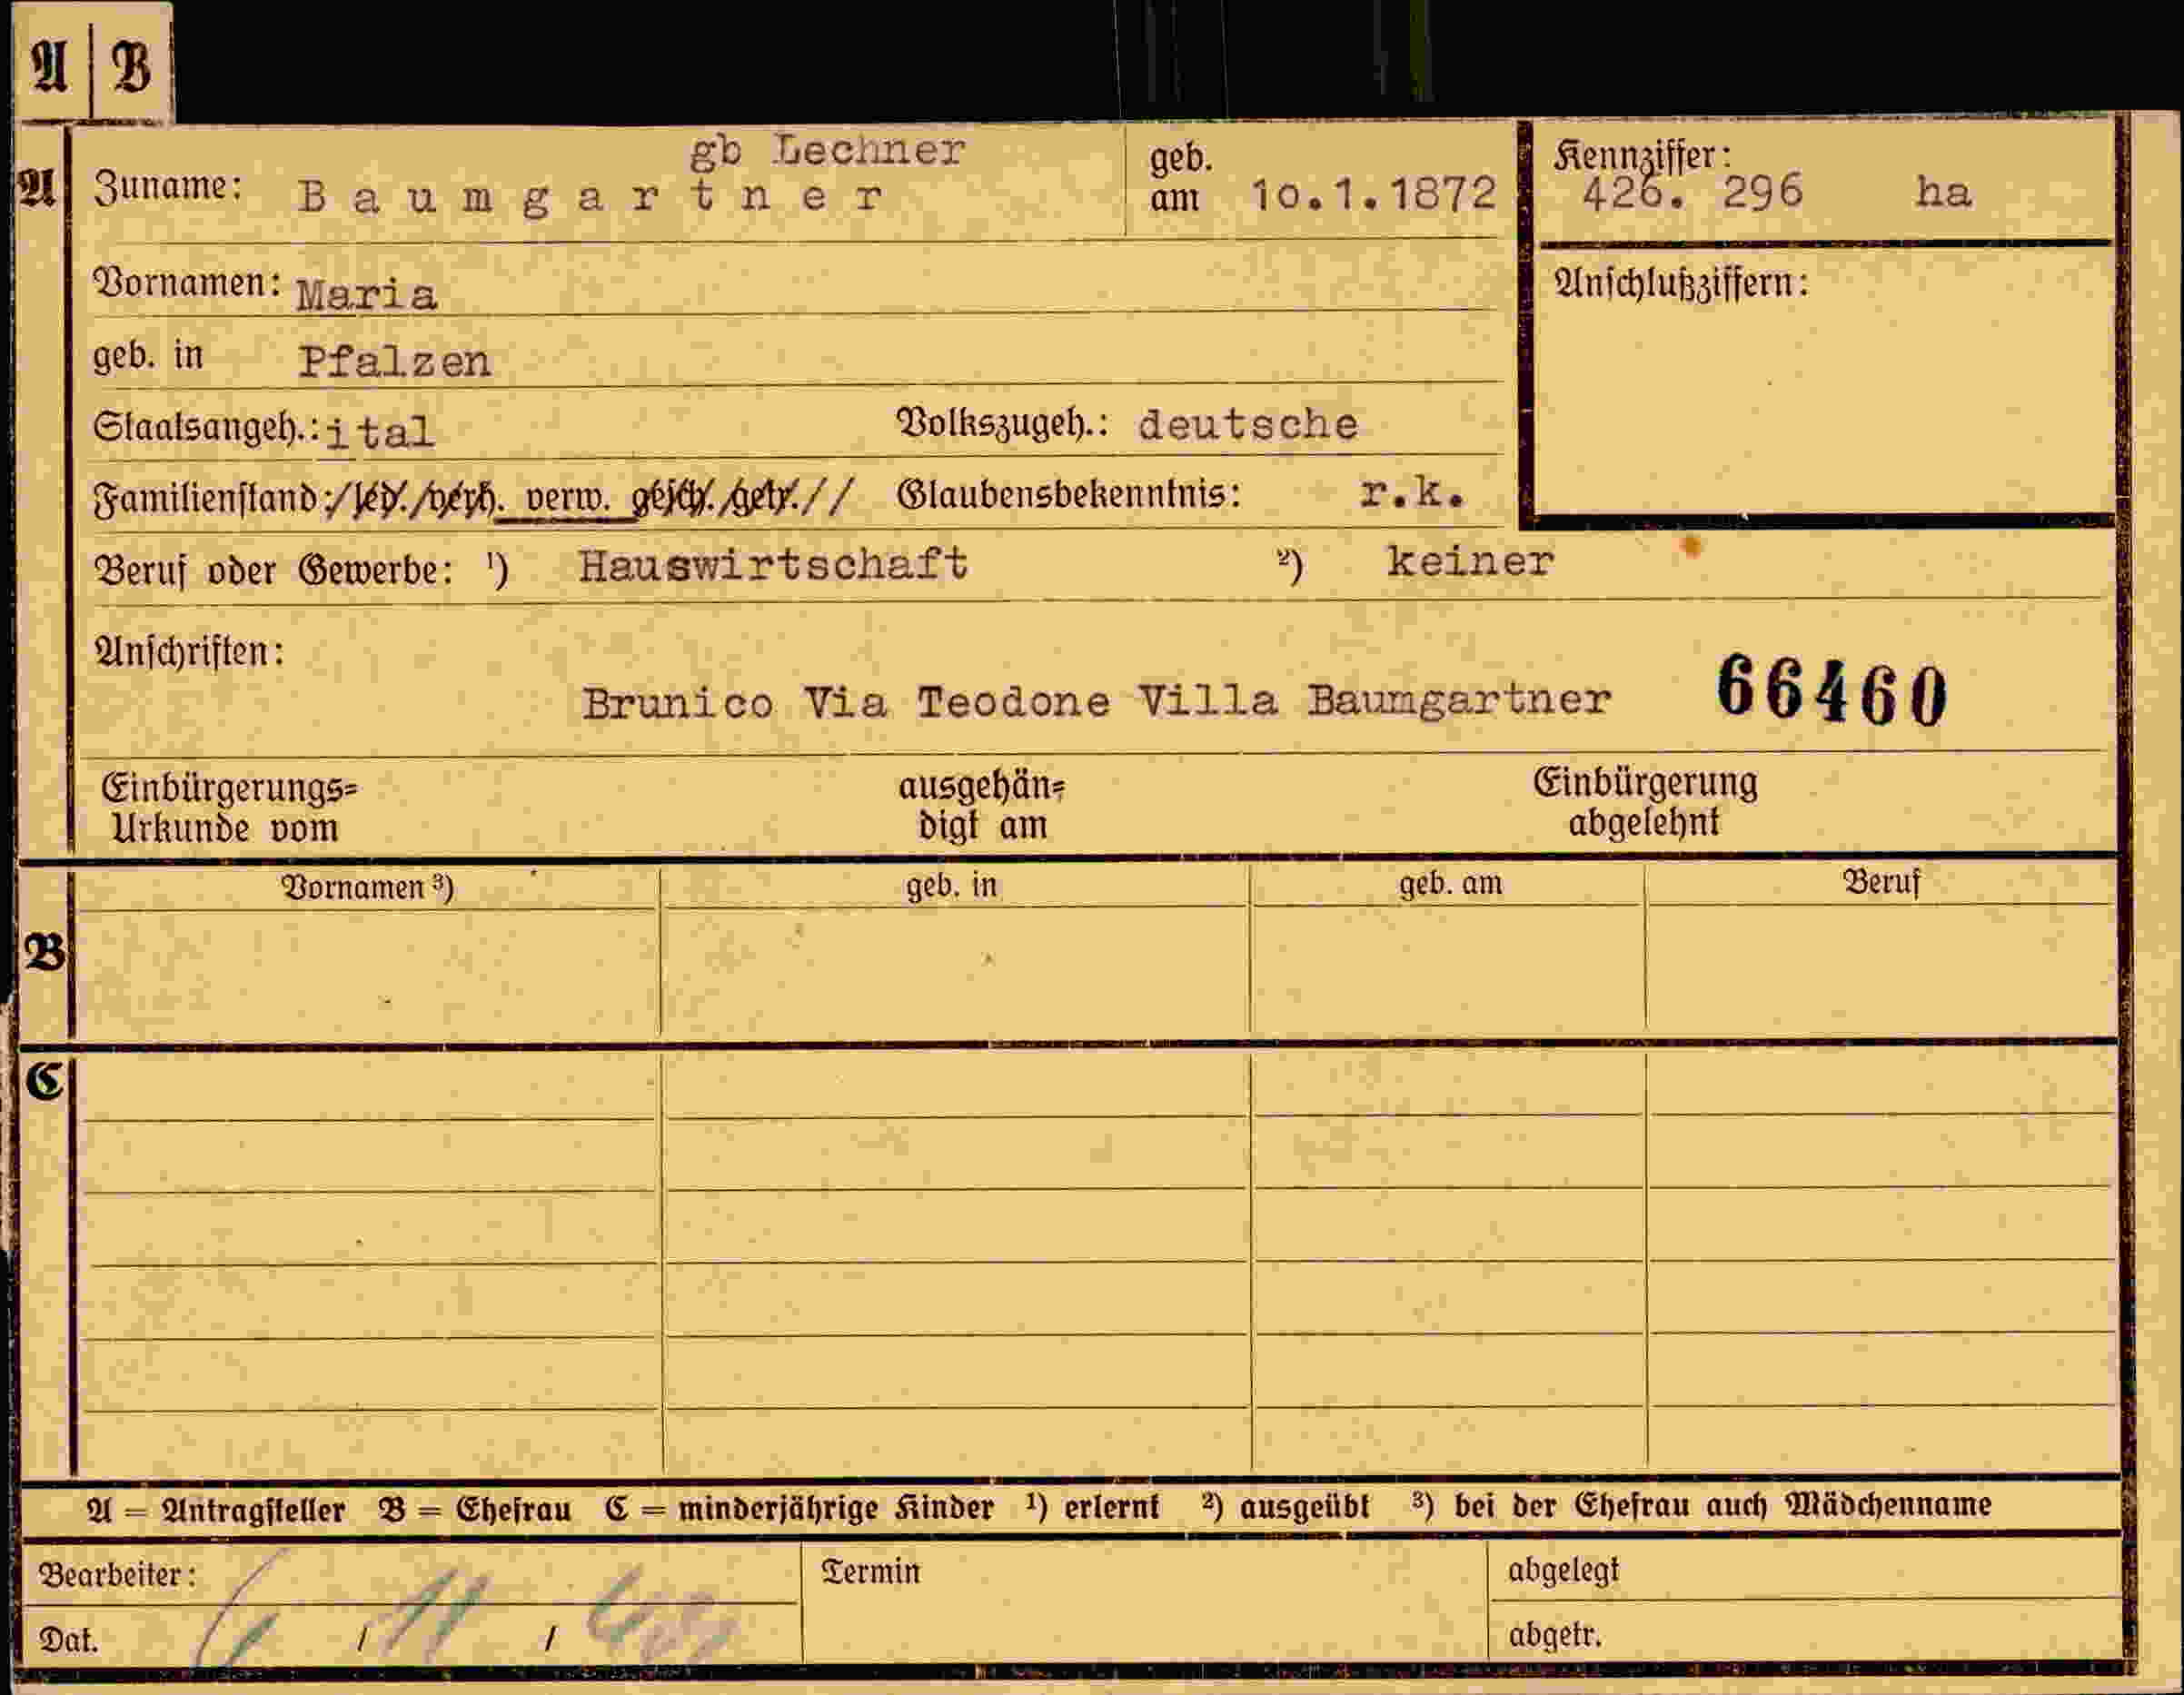 A | B
gb Lechner
A Zuname: B a u m g a r t n e r geb. am 10.1.1872 Kennziffer: 426. 296 ha
Vornamen: Maria Anschlußziffern:
geb. in Pfalzen
Staatsangeh.: ital Volkszugeh.: deutsche
Familienstand: /led./verh. verw. gesch./getr.// Glaubensbekenntnis: r.k.
Beruf oder Gewerbe: ¹) Hauswirtschaft ²) keiner
Anschriften:
Brunico Via Teodone Villa Baumgartner 66460
Einbürgerungs= ausgehän= Einbürgerung
Urkunde vom digt am abgelehnt
Vornamen ³) geb. in geb. am Beruf
B
C
A = Antragsteller B = Ehefrau C = minderjährige Kinder ¹) erlernt ²) ausgeübt ³) bei der Ehefrau auch Mädchenname
Bearbeiter: Termin abgelegt
Dat. / / abgetr.